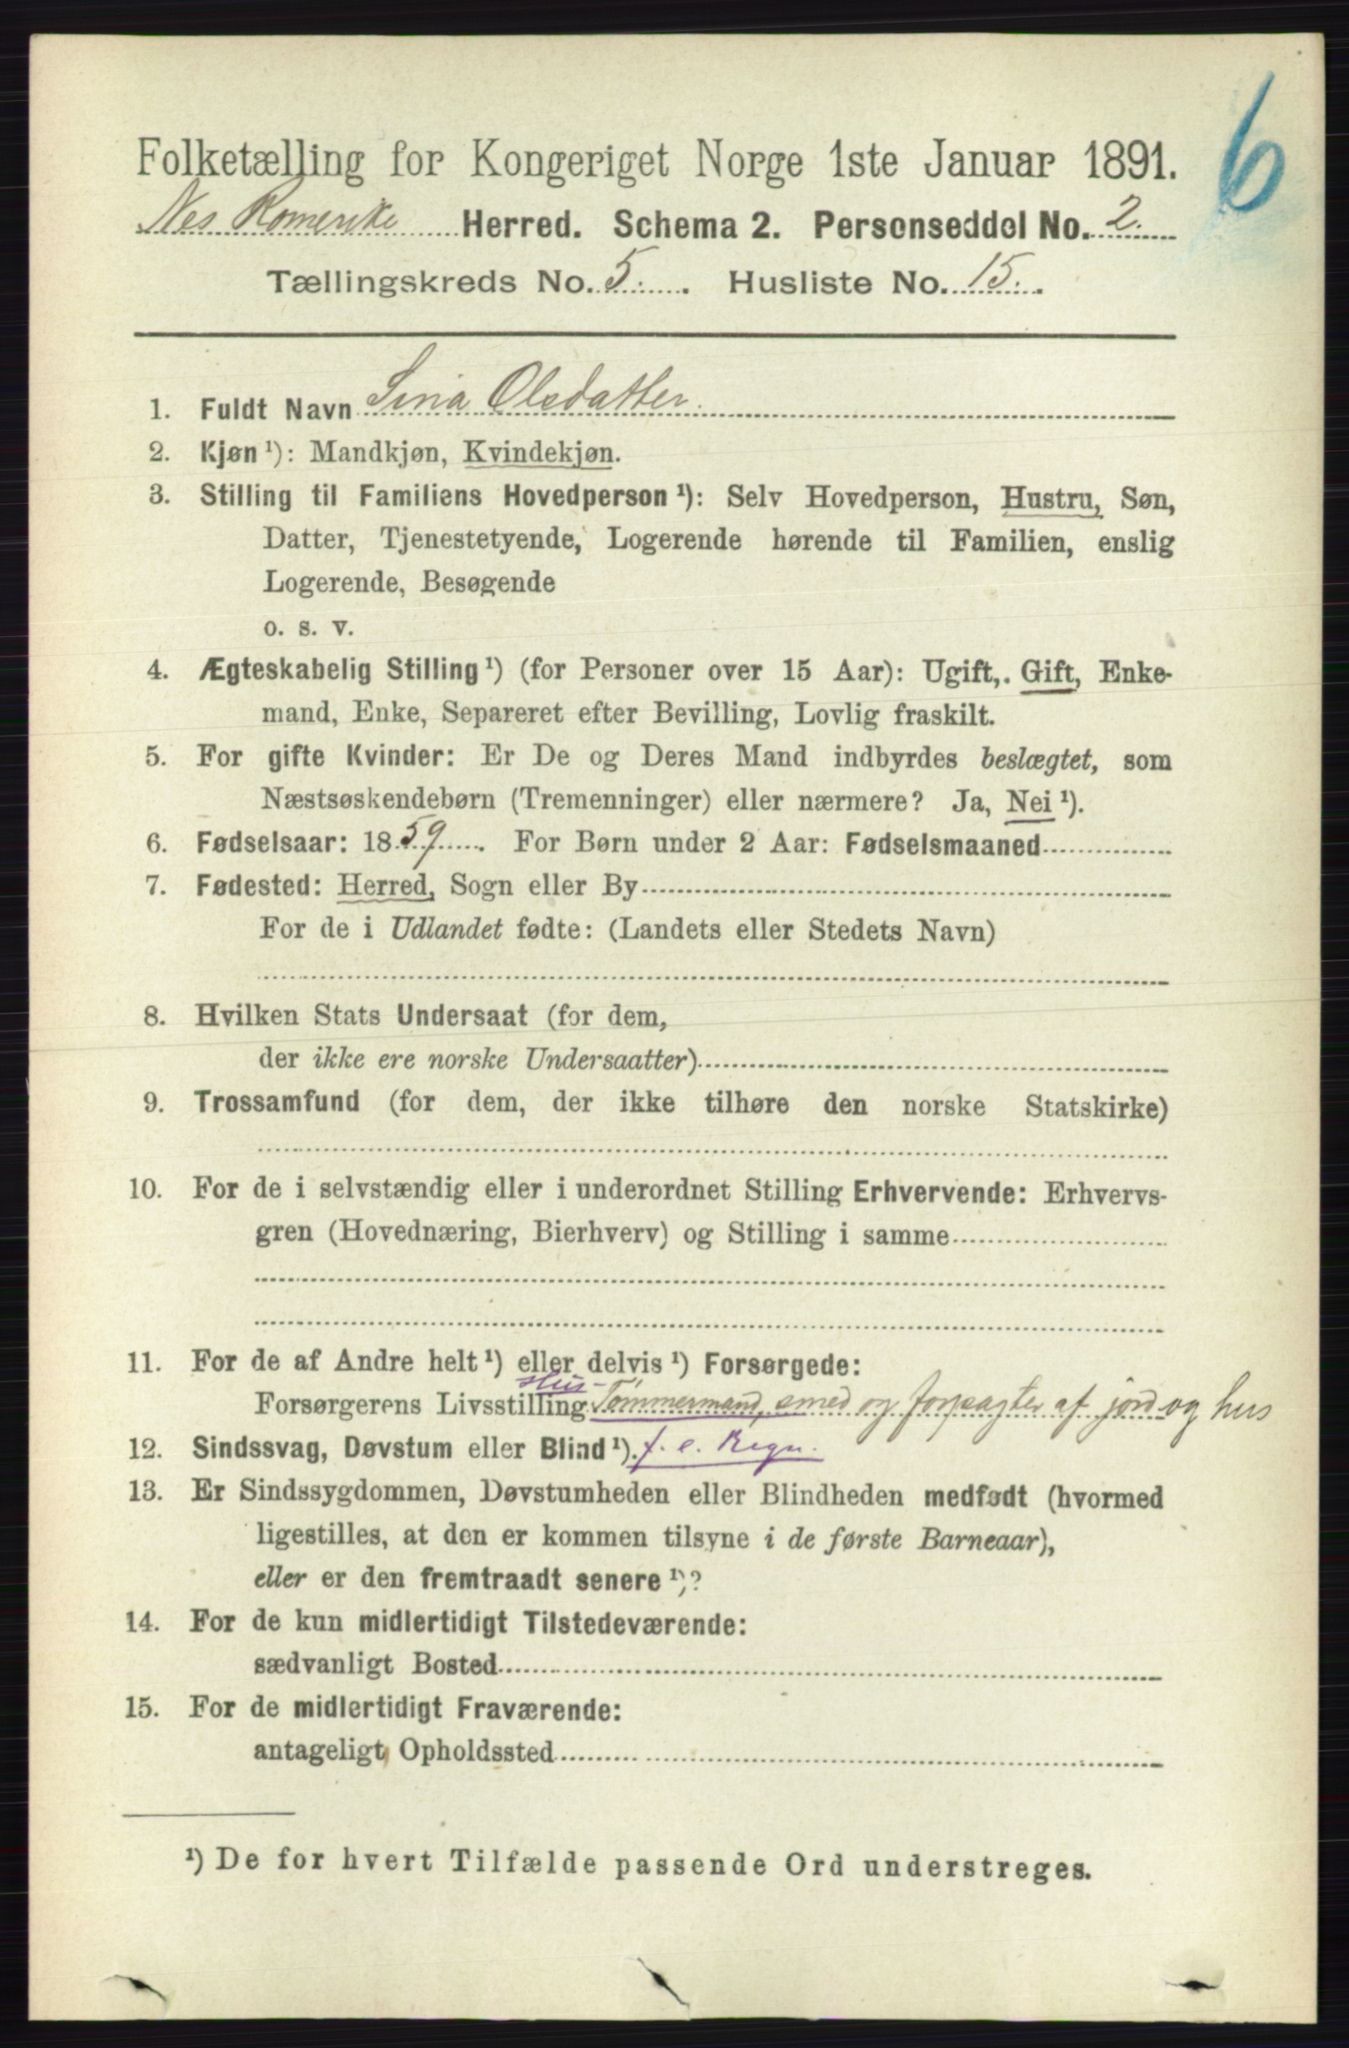 6
Folketælling for Kongeriget Norge 1ste Januar 1891.
Nes Romerike Herred. Schema 2. Personseddel No. 2.
Tællingskreds No. 5. Husliste No. 15.
1. Fuldt Navn Siria Olsdatter.
2. Kjøn ¹): Mandkjøn, Kvindekjøn.
3. Stilling til Familiens Hovedperson ¹): Selv Hovedperson, Hustru, Søn,
Datter, Tjenestetyende, Logerende hørende til Familien, enslig
Logerende, Besøgende
o. s. v.
4. Ægteskabelig Stilling ¹) (for Personer over 15 Aar): Ugift, Gift, Enke-
mand, Enke, Separeret efter Bevilling, Lovlig fraskilt.
5. For gifte Kvinder: Er De og Deres Mand indbyrdes beslægtet, som
Næstsøskendebørn (Tremenninger) eller nærmere? Ja, Nei ¹).
6. Fødselsaar: 1859. For Børn under 2 Aar: Fødselsmaaned
7. Fødested: Herred, Sogn eller By
For de i Udlandet fødte: (Landets eller Stedets Navn)
8. Hvilken Stats Undersaat (for dem,
der ikke ere norske Undersaatter)
9. Trossamfund (for dem, der ikke tilhøre den norske Statskirke)
10. For de i selvstændig eller i underordnet Stilling Erhvervende: Erhvervs-
gren (Hovednæring, Bierhverv) og Stilling i samme
11. For de af Andre helt ¹) eller delvis ¹) Forsørgede:
Hus-
Forsørgerens Livsstilling Tømmermand, smed og forpagter af jord og hus
12. Sindssvag, Døvstum eller Blind ¹). f. e. Regn.
13. Er Sindssygdommen, Døvstumheden eller Blindheden medfødt (hvormed
ligestilles, at den er kommen tilsyne i de første Barneaar),
eller er den fremtraadt senere ¹)?
14. For de kun midlertidigt Tilstedeværende:
sædvanligt Bosted
15. For de midlertidigt Fraværende:
antageligt Opholdssted
¹) De for hvert Tilfælde passende Ord understreges.